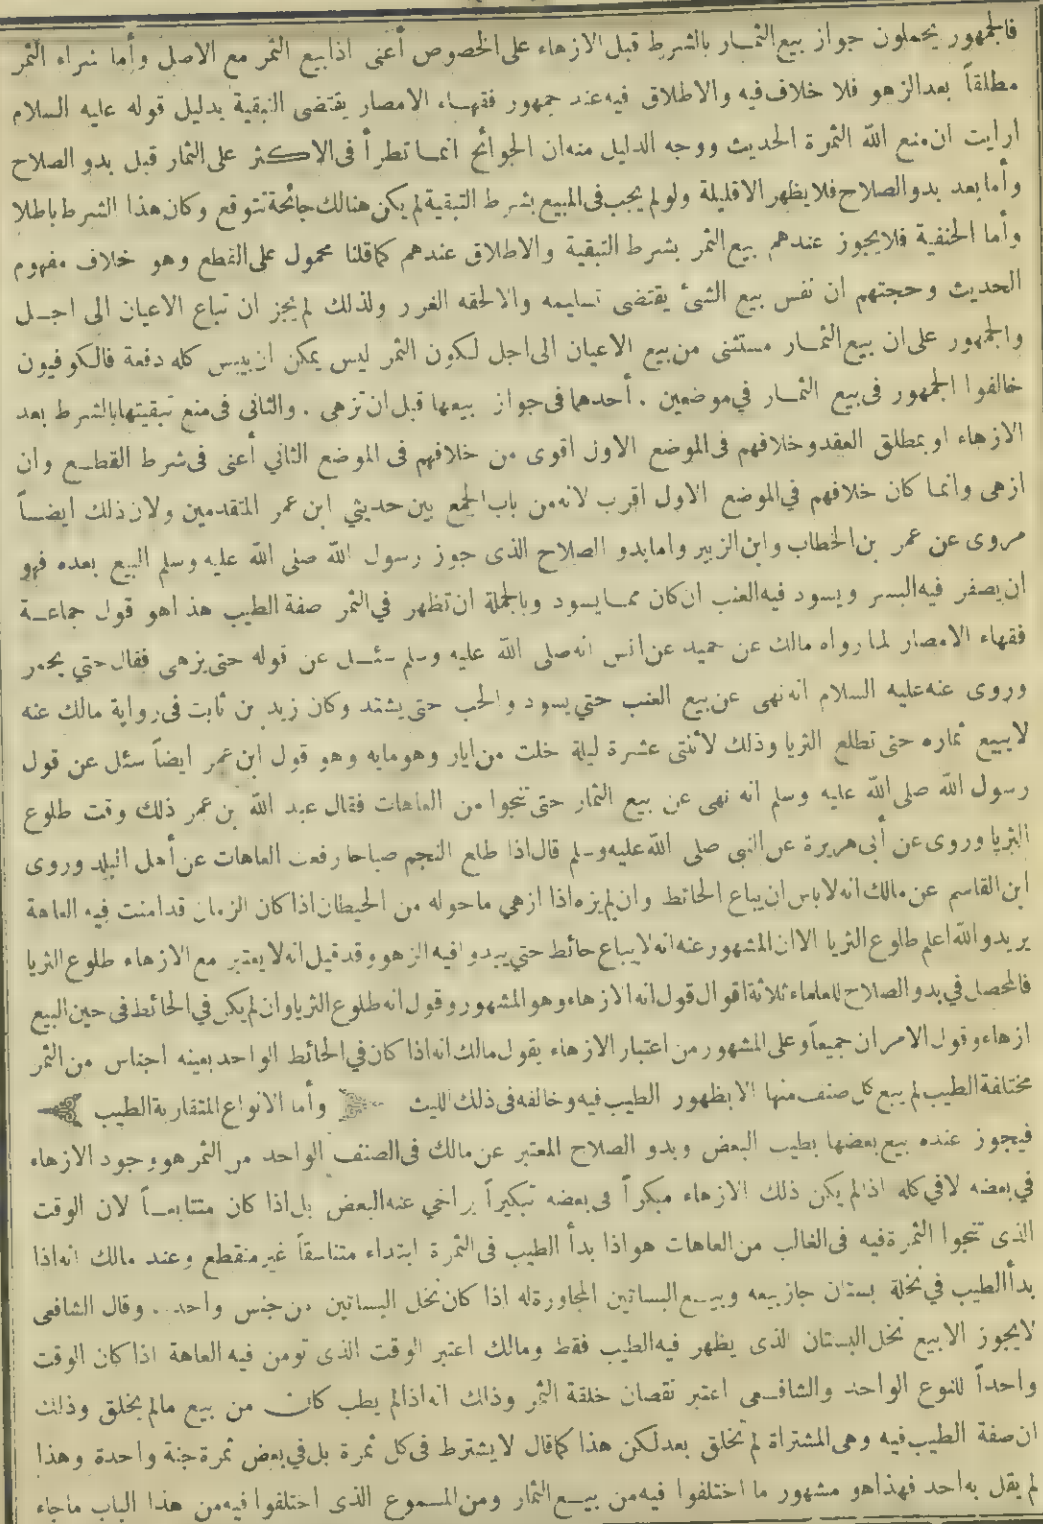 فالجمهور يحملون جواز بيع الثمار بالشرط قبل الازهاء على الخصوص أعنى اذا بيع الثمر مع الاصل وأما شراء الثمر
مطلقاً بعد الزهو فلا خلاف فيه والاطلاق فيه عند جمهور فقهاء الامصار يقتضى التبقية بدليل قوله عليه السلام
ارايت ان منع الله الثمرة الحديث ووجه الدليل منه ان الجوائح انما تطرأ فى الاكثر على الثمار قبل بدو الصلاح
وأما بعد بدو الصلاح فلا يظهر الا قليلة ولو لم يجب فى المبيع بشرط التبقية لم يكن هنالك جائحة تتوقع وكان هذا الشرط باطلا
وأما الحنفية فلا يجوز عندهم بيع الثمر بشرط التبقية والاطلاق عندهم كما قلنا محمول على القطع وهو خلاف مفهوم
الحديث وحجتهم ان نفس بيع الشئ يقتضى تسليمه والا لحقه الغرر ولذلك لم يجز ان تباع الاعيان الى اجل
والجمهور على ان بيع الثمار مستثنى من بيع الاعيان الى اجل لكون الثمر ليس يمكن ان ييبس كله دفعة فالكوفيون
خالفوا الجمهور فى بيع الثمار في موضعين . أحدهما فى جواز بيعها قبل ان تزهى . والثانى فى منع تبقيتها بالشرط بعد
الازهاء او بمطلق العقد وخلافهم فى الموضع الاول اقوى من خلافهم فى الموضع الثاني أعنى فى شرط القطع وان
ازهى وانما كان خلافهم في الموضع الاول اقرب لانه من باب الجمع بين حديثي ابن عمر المتقدمين ولان ذلك ايضاً
مروى عن عمر بن الخطاب وابن الزبير واما بدو الصلاح الذى جوز رسول الله صلى الله عليه وسلم البيع بعده فهو
ان يصفر فيه البسر ويسود فيه العنب ان كان مما يسود وبالجملة ان تظهر في الثمر صفة الطيب هذا هو قول جماعة
فقهاء الامصار لما رواه مالك عن حميد عن انس انه صلى الله عليه وسلم سئل عن قوله حتى يزهى فقال حتي يحمر
وروى عنه عليه السلام انه نهى عن بيع العنب حتي يسود والحب حتى يشتد وكان زيد بن ثابت فى رواية مالك عنه
لا يبيع ثماره حتى تطلع الثريا وذلك لأثنتى عشرة ليلة خلت من ايار وهو مايه وهو قول ابن عمر ايضاً سئل عن قول
رسول الله صلى الله عليه وسلم انه نهى عن بيع الثمار حتى تنجوا من العاهات فقال عبد الله بن عمر ذلك وقت طلوع
الثريا وروى عن أبى هريرة عن النبى صلى الله عليه وسلم قال اذا طلع النجم صباحا رفعت العاهات عن أهل البلد وروى
ابن القاسم عن مالك انه لا باس ان يباع الحائط وان لم يزه اذا ازهي ما حوله من الحيطان اذا كان الزمان قد امنت فيه العاهة
يريد والله اعلم طلوع الثريا الا ان المشهور عنه انه لا يباع حائط حتي يبدو فيه الزهو وقد قيل انه لا يعتبر مع الازهاء طلوع الثريا
فالمحصل في بدو الصلاح للعلماء ثلاثة اقوال قول انه الازهاء وهو المشهور وقول انه طلوع الثريا وان لم يكن في الحائط فى حين البيع
ازهاء وقول الامران جميعاً وعلى المشهور من اعتبار الازهاء يقول مالك انه اذا كان في الحائط الواحد بعينه اجناس من الثمر
مختلفة الطيب لم يبع كل صنف منها الا بظهور الطيب فيه وخالفه فى ذلك الليث وأما الانواع المتقاربة الطيب
فيجوز عنده بيع بعضها بطيب البعض وبدو الصلاح المعتبر عن مالك فى الصنف الواحد من الثمر هو وجود الازهاء
في بعضه لا في كله اذا لم يكن ذلك الازهاء مبكراً فى بعضه تبكيراً يراخي عنه البعض بل اذا كان متتابعاً لان الوقت
الذى تنجوا الثمرة فيه فى الغالب من العاهات هو اذا بدأ الطيب فى الثمرة ابتداء متناسقاً غير منقطع وعند مالك انه اذا
بدأ الطيب في نخلة بستان جاز بيعه وبيع البساتين المجاورة له اذا كان نخل البساتين من جنس واحد . وقال الشافعى
لا يجوز الا بيع نخل البستان الذى يظهر فيه الطيب فقط ومالك اعتبر الوقت الذى تومن فيه العاهة اذا كان الوقت
واحداً للنوع الواحد والشافعى اعتبر نقصان خلقة الثمر وذاك انه اذا لم يطب كان من بيع مالم يخلق وذلك
ان صفة الطيب فيه وهى المشتراة لم تخلق بعد لكن هذا كما قال لا يشترط فى كل ثمرة بل في بعض ثمرة جنة واحدة وهذا
لم يقل به احد فهذا هو مشهور ما اختلفوا فيه من بيع الثمار ومن المسموع الذى اختلفوا فيه من هذا الباب ما جاء